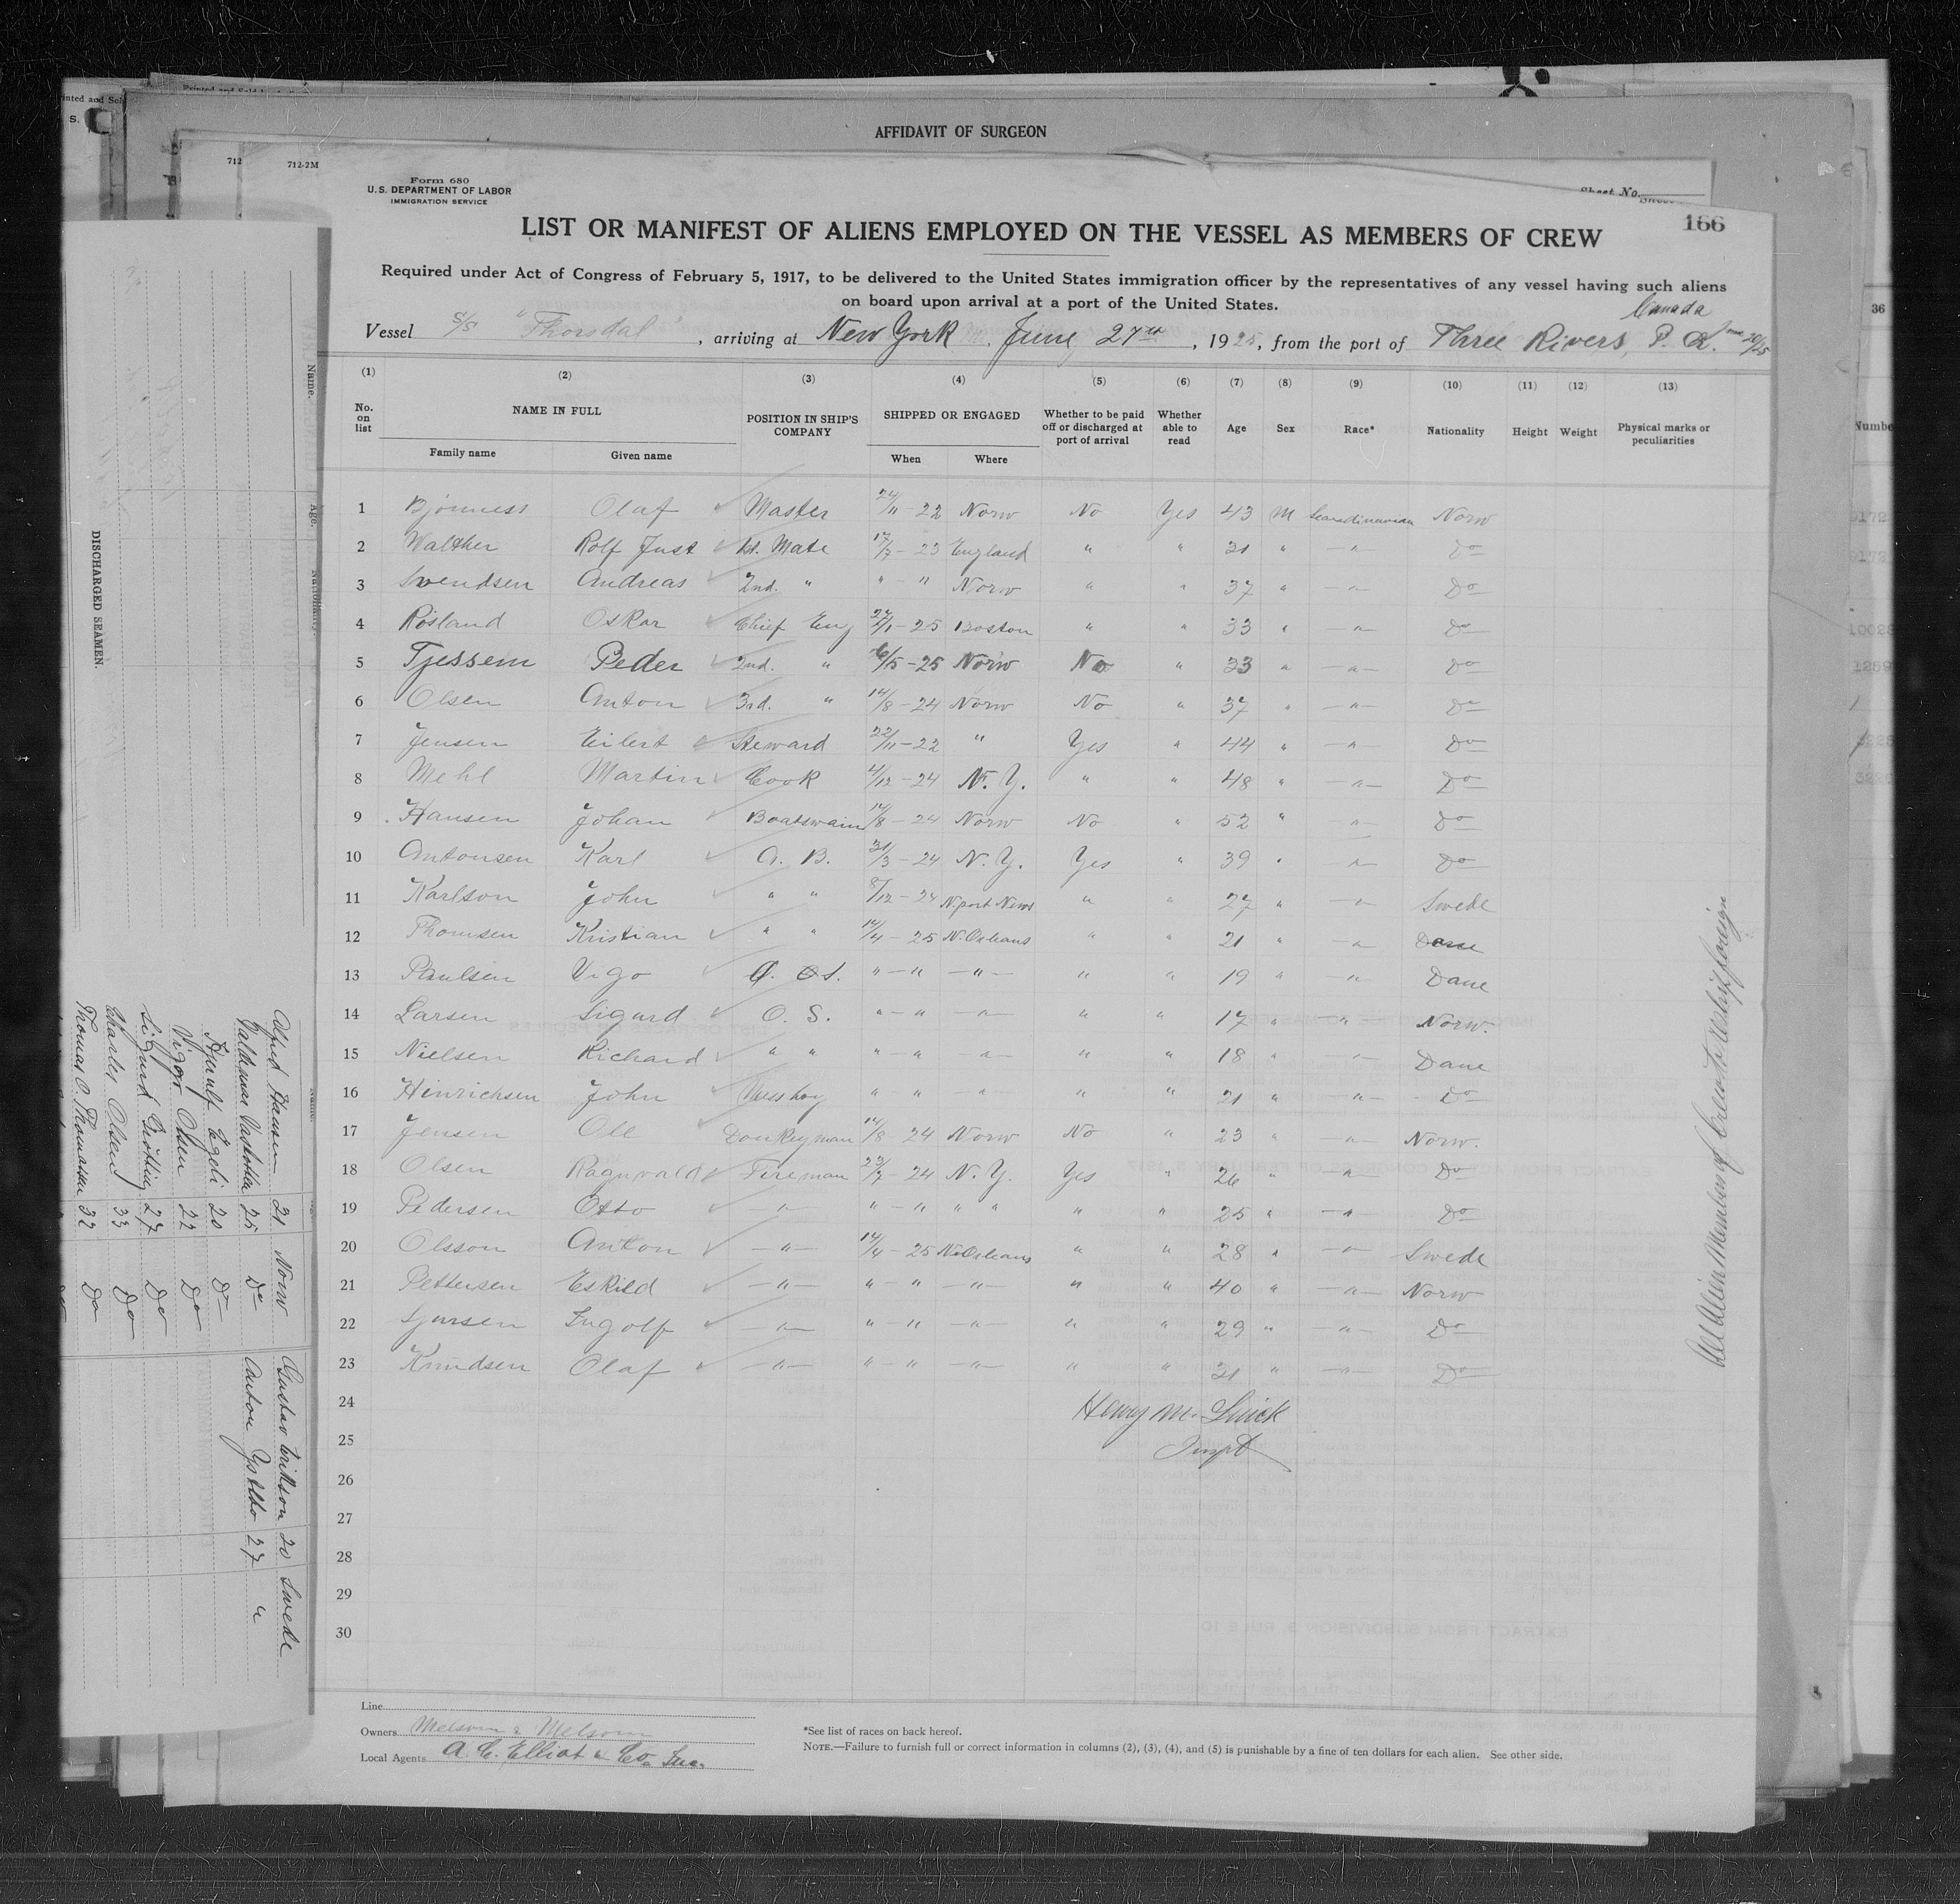 Printed and Sold
S.
AFFIDAVIT OF SURGEON
712
712-2M
Form 680
U.S. DEPARTMENT OF LABOR
IMMIGRATION SERVICE
Sheet No.
166
LIST OR MANIFEST OF ALIENS EMPLOYED ON THE VESSEL AS MEMBERS OF CREW
Required under Act of Congress of February 5, 1917, to be delivered to the United States immigration officer by the representatives of any vessel having such aliens
on board upon arrival at a port of the United States.
Canada
Vessel S/S "Thorsdal", arriving at New York June 27th, 1925, from the port of Three Rivers, P. Q. June 20/25
(1) (2) (3) (4) (5) (6) (7) (8) (9) (10) (11) (12) (13)
No. on list NAME IN FULL POSITION IN SHIP'S COMPANY SHIPPED OR ENGAGED Whether to be paid off or discharged at port of arrival Whether able to read Age Sex Race* Nationality Height Weight Physical marks or peculiarities
Family name Given name When Where
1 Bjonness Olaf Master 24/11-22 Norw No Yes 43 M Scandinavian Norw
2 Walther Rolf Just 1st. Mate 17/7-23 England " " 31 " -"- Do
3 Svendsen Andreas 2nd. " "-" Norw " " 37 " -"- Do
4 Rosland Oskar Chief Eng 27/1-25 Boston " " 33 " -"- Do
5 Tjessem Peder 2nd. " 6/5-25 Norw No " 33 " -"- Do
6 Olsen Anton 3rd. " 14/8-24 Norw No " 37 " -"- Do
7 Jensen Eilert Steward 22/11-22 " Yes " 44 " -"- Do
8 Mehl Martin Cook 4/12-24 N. Y. " " 48 " -"- Do
9 Hansen Johan Boatswain 14/8-24 Norw No " 52 " -"- Do
10 Antonsen Karl A. B. 31/3-24 N. Y. Yes " 39 " -"- Do
11 Karlson John " " 8/12-24 N.port News " " 27 " -"- Swede
12 Thomsen Kristian " " 14/4-25 N. Orleans " " 21 " -"- Dane
13 Paulsen Vigo O. S. "-" -"- " " 19 " " Dane
14 Larsen Sigurd O. S. "-" -"- " " 17 " -"- Norw.
15 Nielsen Richard " " "-" -"- " " 18 " -"- Dane
16 Hinrichsen John Messboy "-" -"- " " 21 " -"- Do
17 Jensen Ole Donkeyman 14/8 24 Norw No " 23 " -"- Norw.
18 Olsen Ragnvald Fireman 23/7-24 N. Y. Yes " 26 " -"- Do
19 Pedersen Otto -"- "-" " " " " 25 " -"- Do
20 Olsson Anton -"- 14/4-25 N. Orleans " " 28 " -"- Swede
21 Pettersen Eskild -"- "-" -"- " " 40 " -"- Norw
22 Sjursen Ingolf -"- "-" -"- " " 29 " -"- Do
23 Knudsen Olaf -"- "-" -"- " " 31 " -"- Do
24
25
26
27
28
29
30
Henry M.
Inspt
All Alien Members of Crew to reship foreign
Line
Owners Melsom & Melsom
Local Agents A. C. Elliot & Co. Inc.
*See list of races on back hereof.
NOTE.—Failure to furnish full or correct information in columns (2), (3), (4), and (5) is punishable by a fine of ten dollars for each alien. See other side.
DISCHARGED SEAMEN.
Name. Age. Nationality.
Alfred Hansen 21 Norw
Valdemar 25 Do
20 Do
Viggo Olsen 22 Do
Sigurd 27 Do
Charles Olsen 33 Do
Thomas O. Thomassen 32 Do
Gustav Erikson 20 Swede
Anton 27 "
36
Number